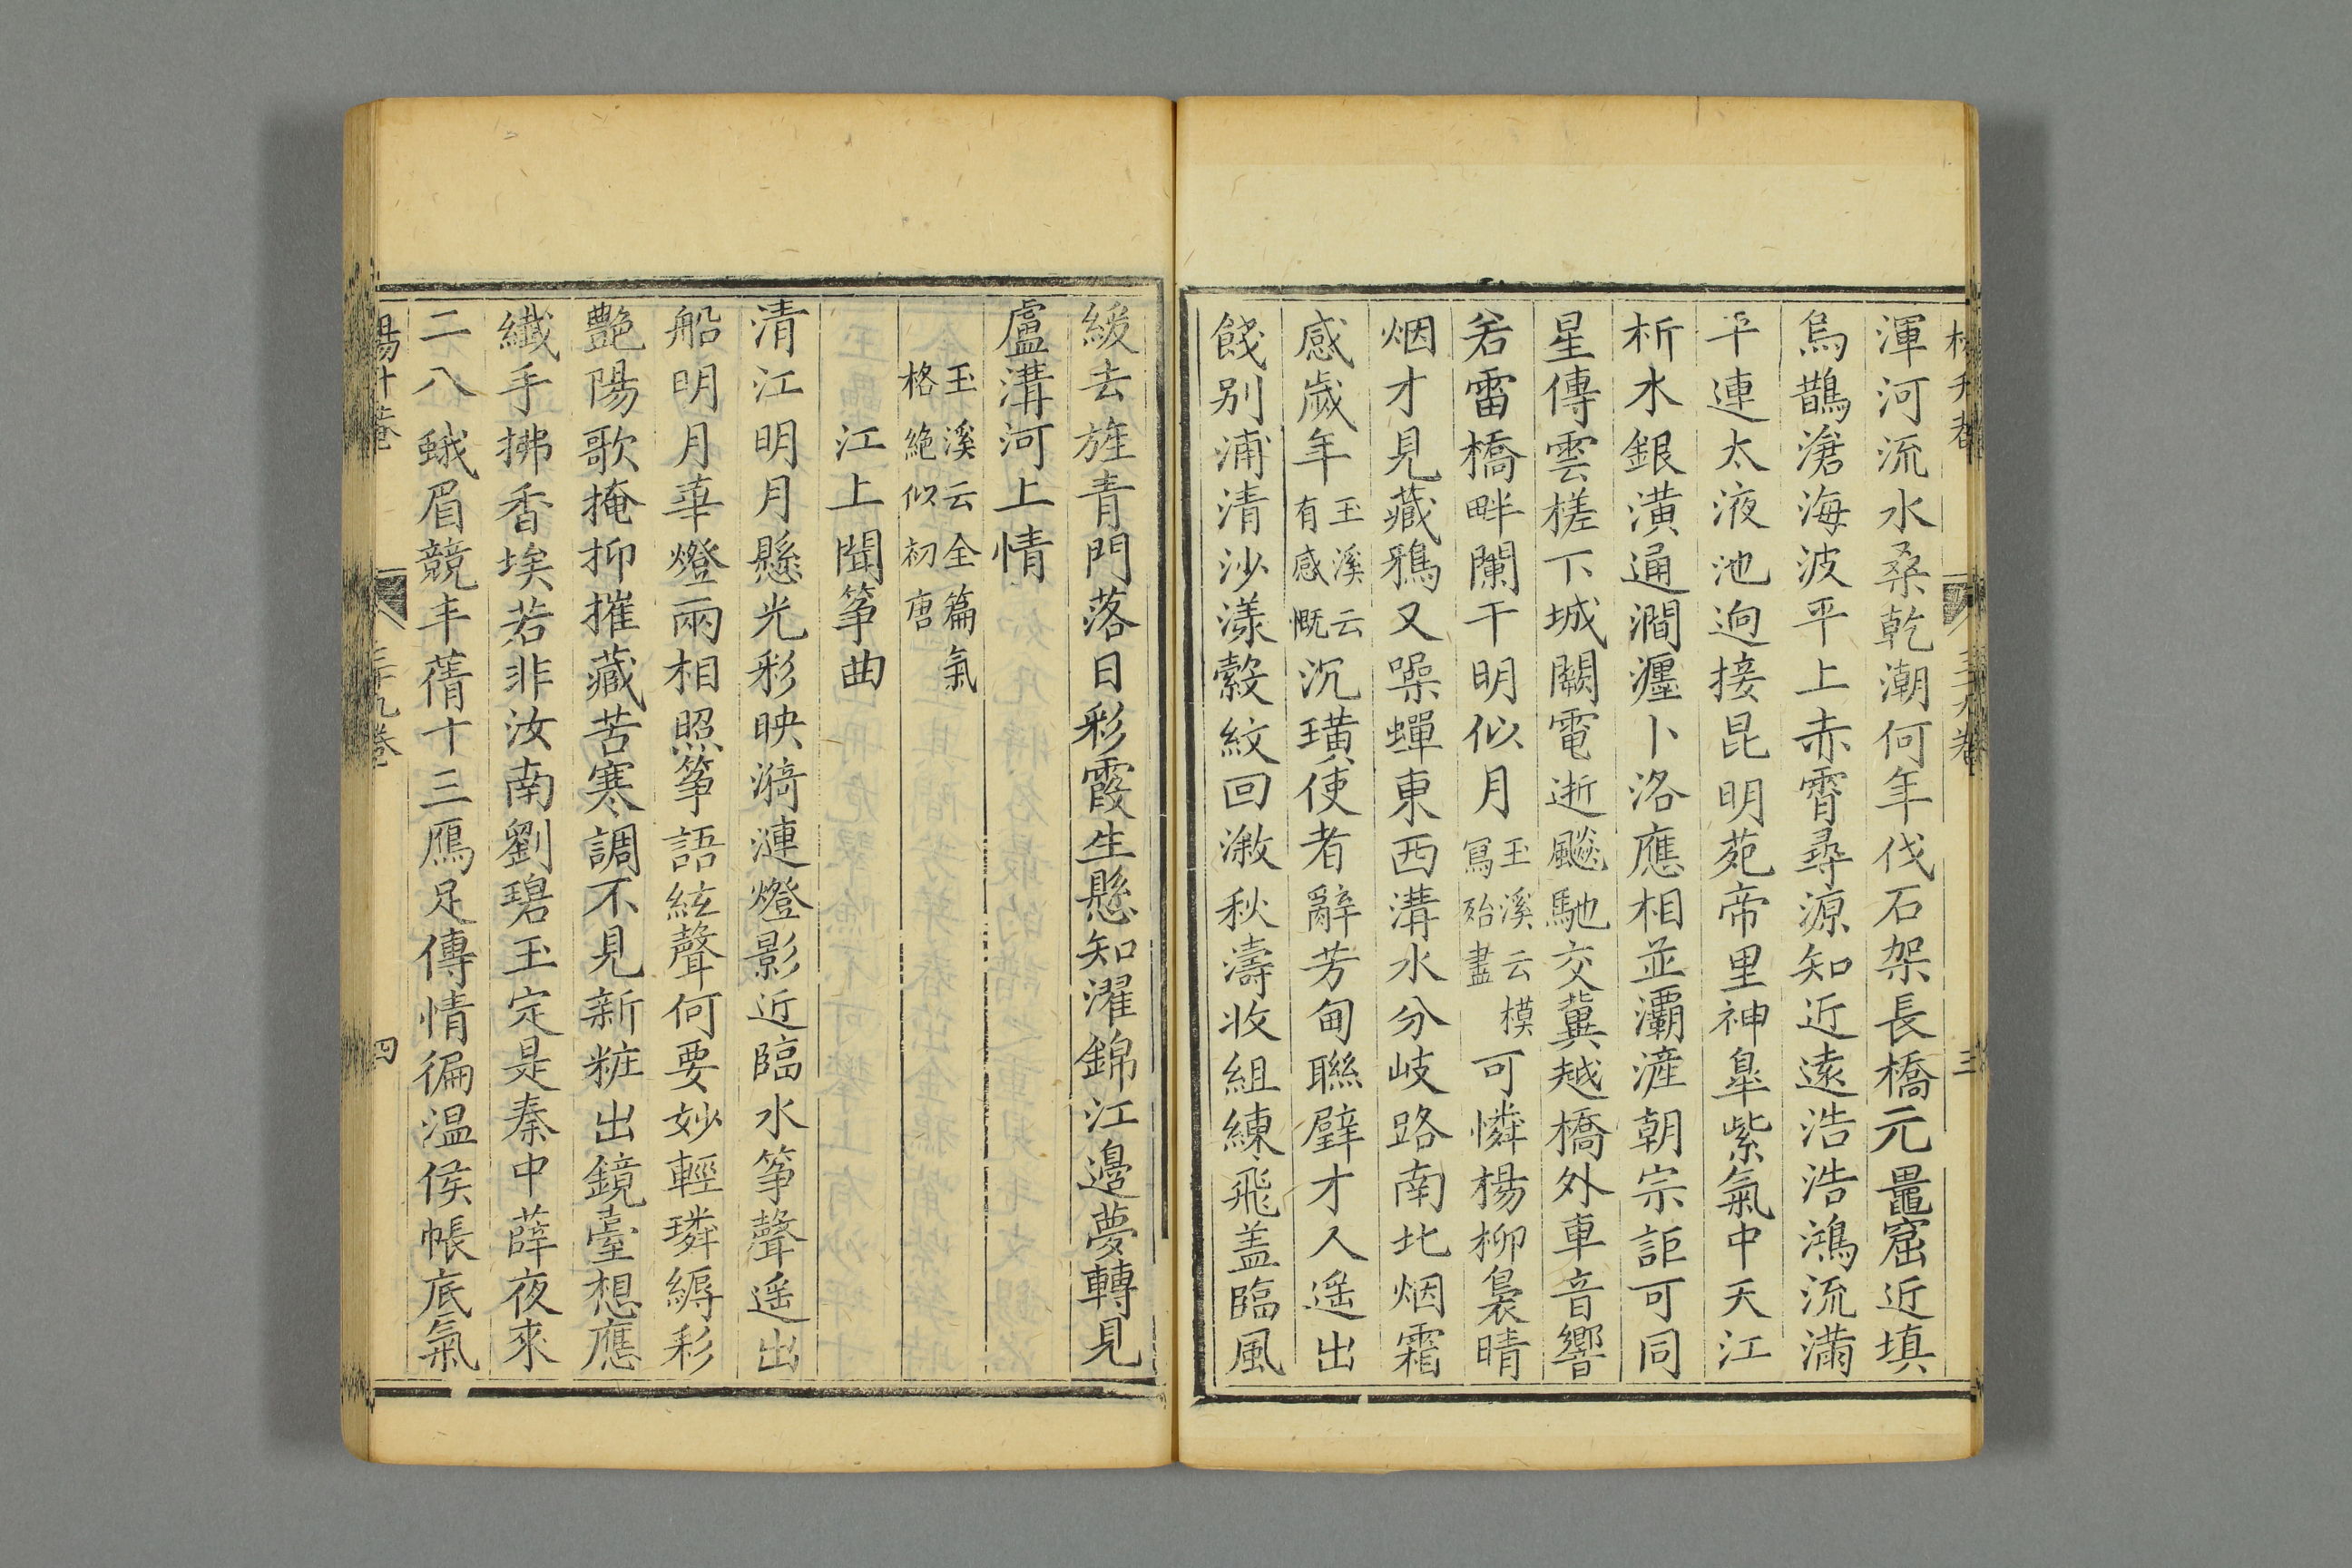 渾河流水桑乾潮何年伐石架長橋元鼉窟近填
烏鵲滄海波平上赤霄尋源知近遠浩浩鴻流滿
平連太液池逈接昆明苑帝里神臯紫氣中天江
析水銀潢通澗瀍卜洛應相並灞滻朝宗詎可同
星傳雲槎下城闕電逝飈馳交冀越橋外車音響
若雷橋畔闌干明似月玉溪云模寫殆盡可憐楊柳裊晴
烟才見藏鴉又噪蟬東西溝水分岐路南北烟霜
感歲年玉溪云有感慨沉璜使者辭芳甸聯璧才人遥出
餞别浦清沙漾縠紋回溵秋濤收組練飛盖臨風
三
緩去旌青門落日彩霞生懸知濯錦江邊夢轉見
盧溝河上情
玉溪云全篇氣格絶似初唐
江上聞筝曲
清江明月懸光彩映漪漣燈影近臨水筝聲遥出
船明月華燈兩相照筝語絃聲何要妙輕璘縟彩
艷陽歌掩抑摧藏苦寒調不見新粧出鏡臺想應
纖手拂香埃若非汝南劉碧玉定是秦中薛夜來
二八蛾眉競丰蒨十三鴈足傳情徧温侯帳底氣
楊升菴
四